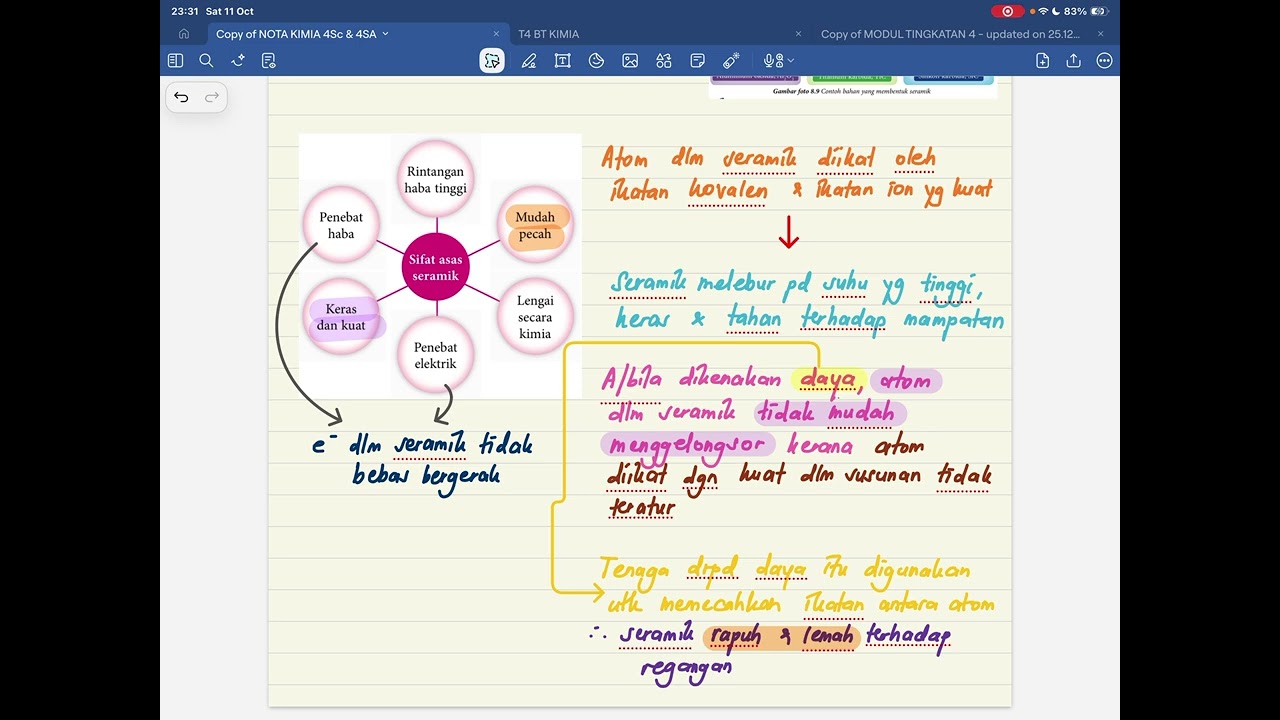 23:31 Sat 11 Oct
83%
Copy of NOTA KIMIA 4Sc & 4SA
T4 BT KIMIA
Copy of MODUL TINGKATAN 4 – updated on 25.12...
Gambar foto 8.9 Contoh bahan yang membentuk seramik
Rintangan
haba tinggi
Penebat
haba
Mudah
pecah
Sifat asas
seramik
Keras
dan kuat
Lengai
secara
kimia
Penebat
elektrik
e⁻ dlm seramik tidak
bebas bergerak
Atom dlm seramik diikat oleh
ikatan kovalen & ikatan ion yg kuat
Seramik melebur pd suhu yg tinggi,
keras & tahan terhadap mampatan
A/bila dikenakan daya, atom
dlm seramik tidak mudah
menggelongsor kerana atom
diikat dgn kuat dlm susunan tidak
teratur
Tenaga drpd daya itu digunakan
utk memecahkan ikatan antara atom
∴ seramik rapuh & lemah terhadap
regangan